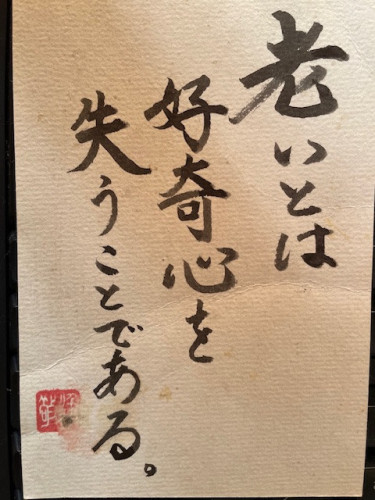 老いとは
好奇心を
失うことである。